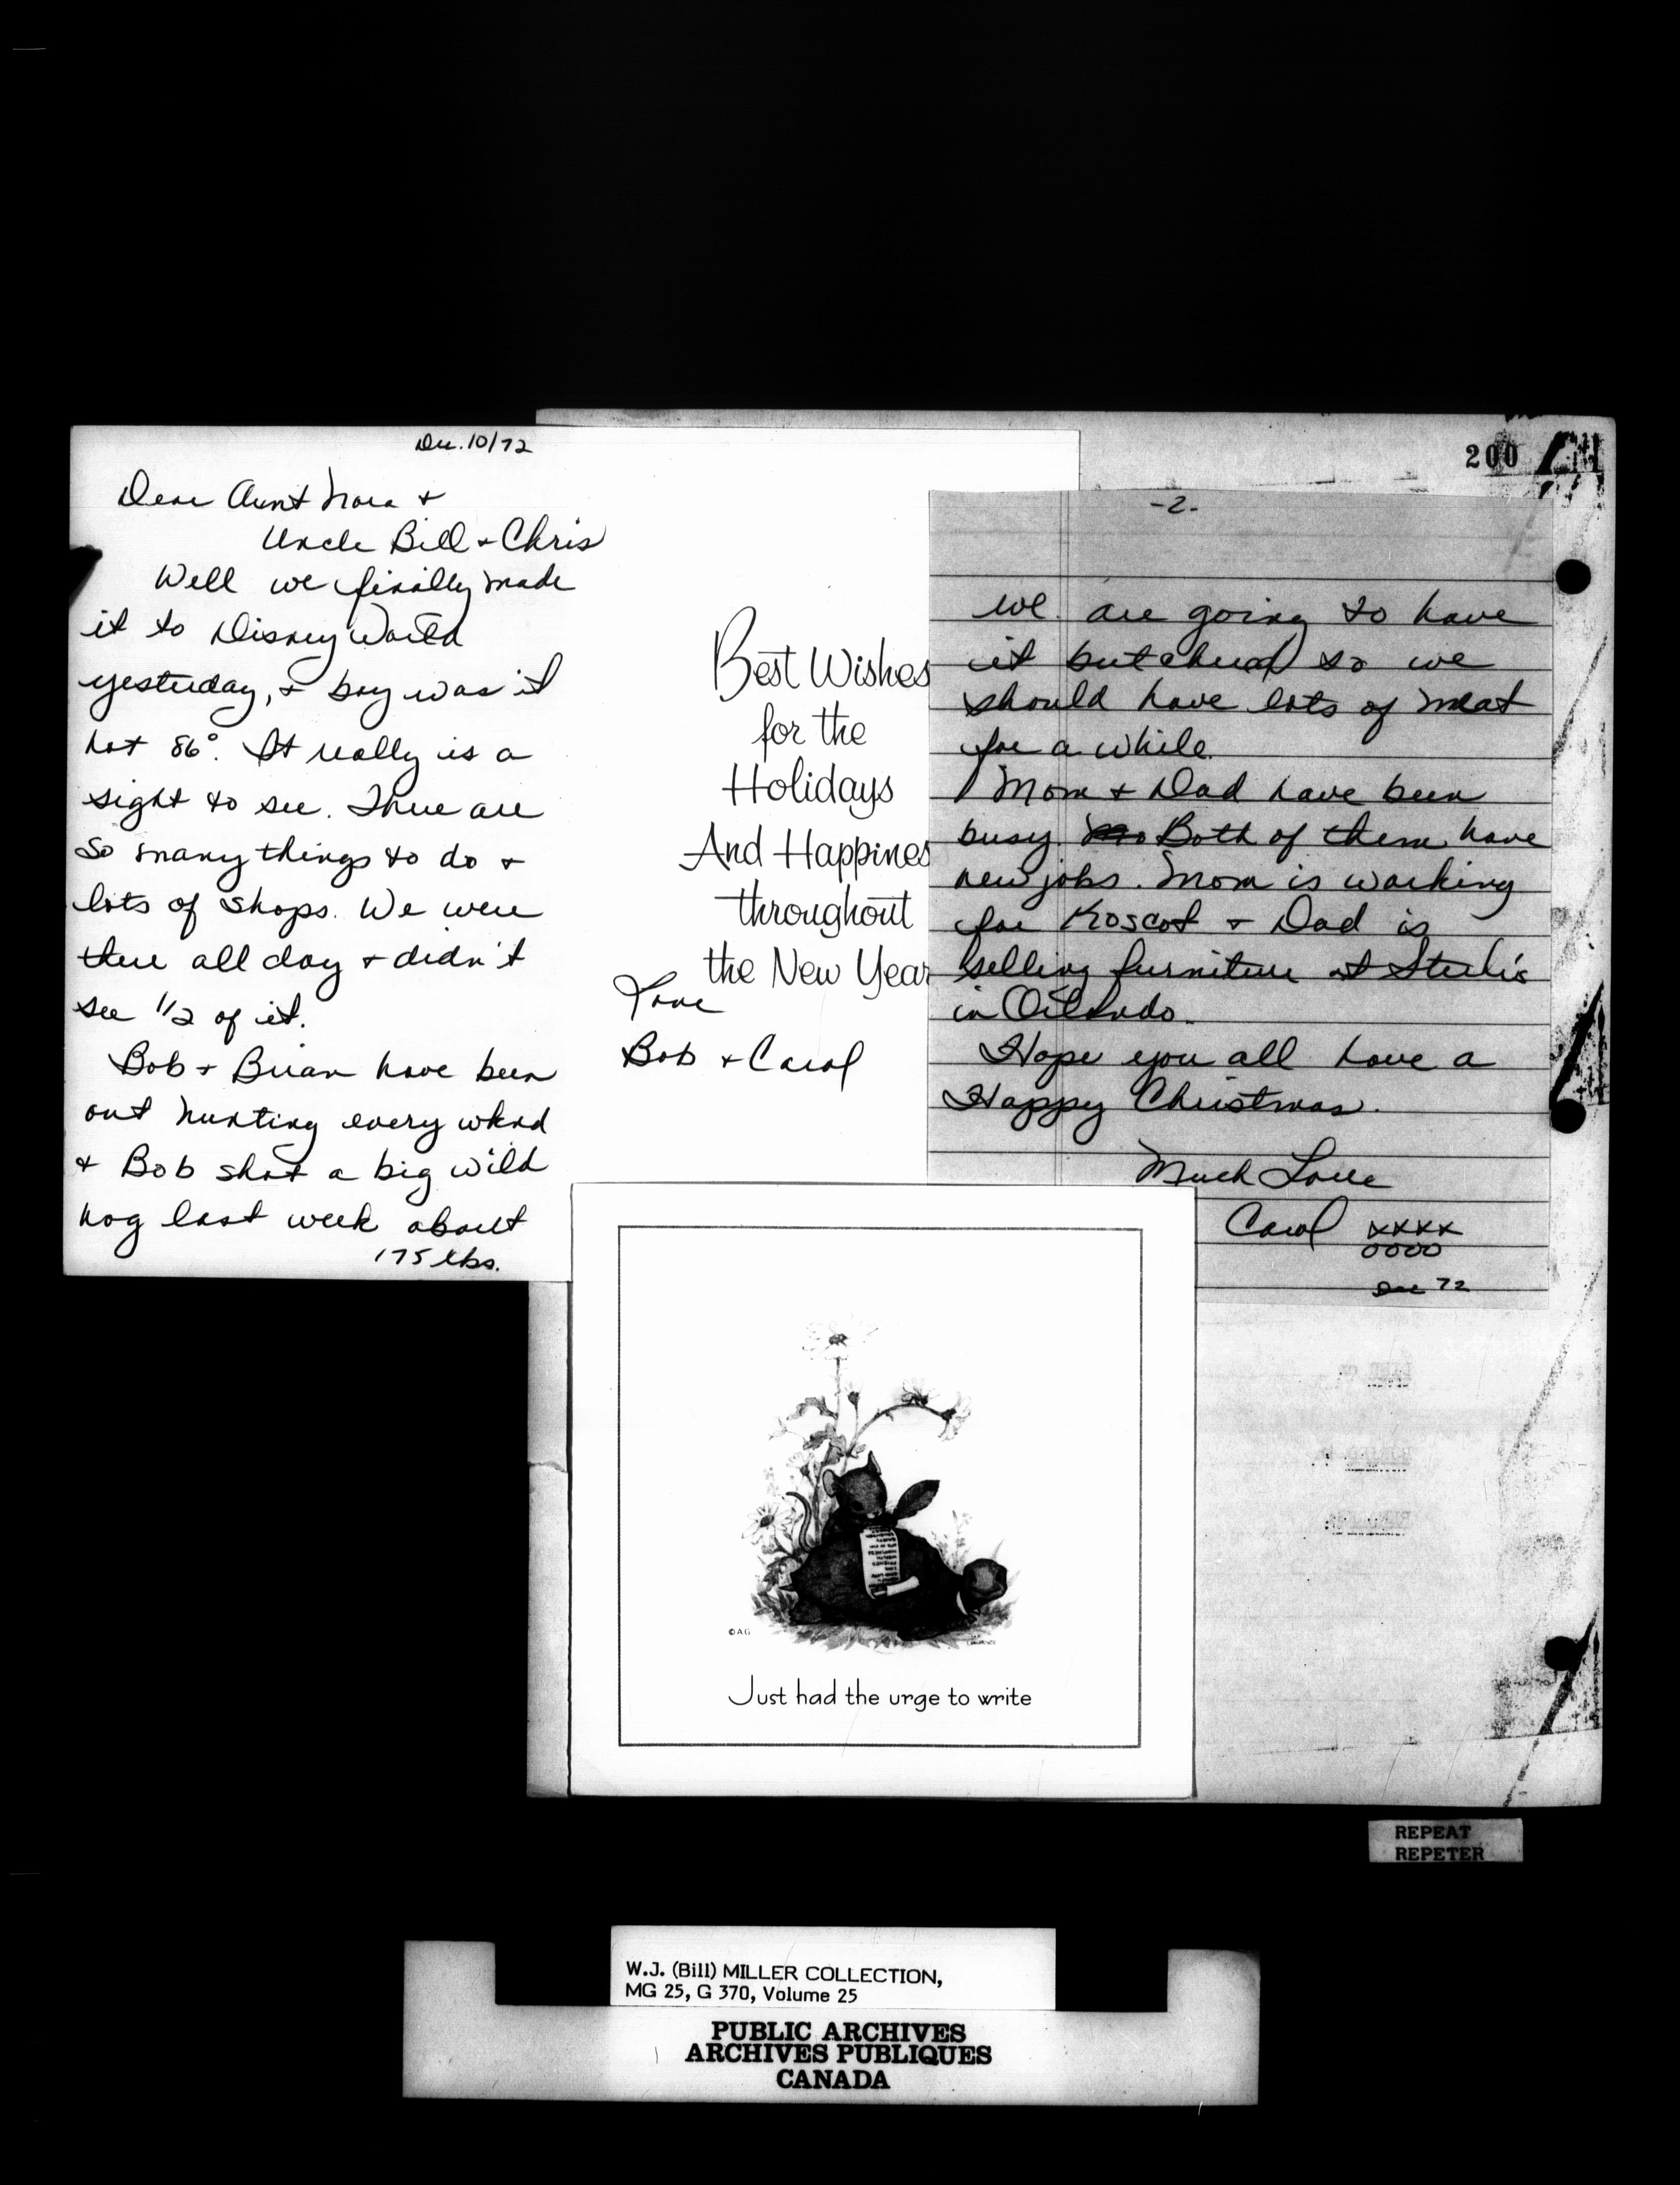 Dec. 10/72
Dear Aunt Nora +
Uncle Bill + Chris
Well we finally made
it to Disney World
yesterday, + boy was it
hot 86°. It really is a
sight to see. There are
so many things to do +
lots of shops. We were
there all day + didn't
see 1/2 of it.
Bob + Brian have been
out hunting every wknd
+ Bob shot a big wild
hog last week about
175 lbs.
Best Wishes
for the
Holidays
And Happines
throughout
the New Year
Love
Bob + Carol
200
-2-
We are going to have
it butchered so we
should have lots of meat
for a while.
Mom + Dad have been
busy. Mo Both of them have
new jobs. Mom is working
for Koscot + Dad is
selling furniture at
in Orlando.
Hope you all have a
Happy Christmas.
Much Love
Carol xxxx
oooo
Dec 72
© A.G
Just had the urge to write
REPEAT
REPETER
W.J. (Bill) MILLER COLLECTION,
MG 25, G 370, Volume 25
PUBLIC ARCHIVES
ARCHIVES PUBLIQUES
CANADA